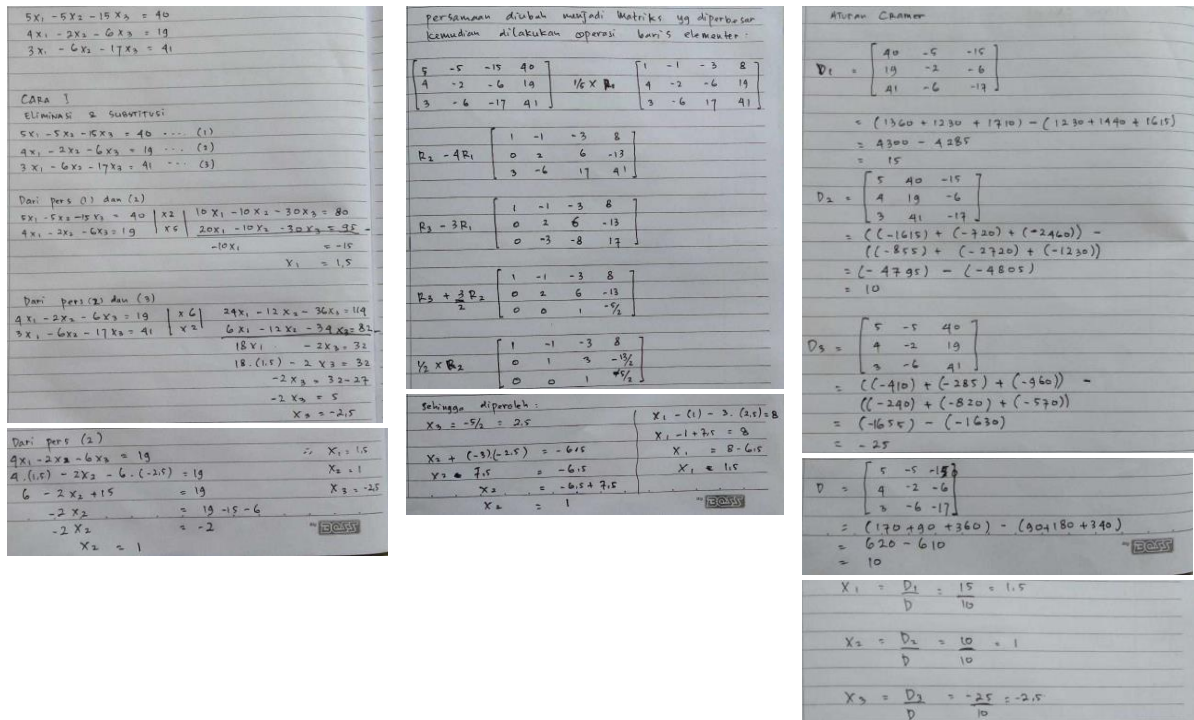 5x₁ - 5x₂ - 15x₃ = 40
4x₁ - 2x₂ - 6x₃ = 19
3x₁ - 6x₂ - 17x₃ = 41
CARA 1
ELIMINASI & SUBSTITUSI
5x₁ - 5x₂ - 15x₃ = 40 .... (1)
4x₁ - 2x₂ - 6x₃ = 19 .... (2)
3x₁ - 6x₂ - 17x₃ = 41 ... (3)
Dari pers (1) dan (2)
5x₁ - 5x₂ - 15x₃ = 40 | x2 | 10x₁ - 10x₂ - 30x₃ = 80
4x₁ - 2x₂ - 6x₃ = 19 | x5 | 20x₁ - 10x₂ - 30x₃ = 95 -
-10x₁ = -15
x₁ = 1,5
Dari pers (2) dan (3)
4x₁ - 2x₂ - 6x₃ = 19 | x6 | 24x₁ - 12x₂ - 36x₃ = 114
3x₁ - 6x₂ - 17x₃ = 41 | x2 | 6x₁ - 12x₂ - 34x₃ = 82 -
18x₁ - 2x₃ = 32
18.(1.5) - 2x₃ = 32
-2x₃ = 32-27
-2x₃ = 5
x₃ = -2,5
Dari pers (2)
4x₁ - 2x₂ - 6x₃ = 19 ∴ x₁ = 1.5
4.(1.5) - 2x₂ - 6.(-2.5) = 19 x₂ = 1
6 - 2x₂ + 15 = 19 x₃ = -2.5
-2x₂ = 19 - 15 - 6
-2x₂ = -2
x₂ = 1
BOSS
persamaan diubah menjadi Matriks yg diperbesar
kemudian dilakukan operasi baris elementer :
5 -5 -15 40 1 -1 -3 8
4 -2 -6 19 1/5 x R₁ 4 -2 -6 19
3 -6 -17 41 3 -6 17 41
1 -1 -3 8
R₂ - 4R₁ 0 2 6 -13
3 -6 17 41
1 -1 -3 8
R₃ - 3R₁ 0 2 6 -13
0 -3 -8 17
1 -1 -3 8
R₃ + 3/2 R₂ 0 2 6 -13
0 0 1 -5/2
1 -1 -3 8
1/2 x R₂ 0 1 3 -13/2
0 0 1 -5/2
Sehingga diperoleh :
x₃ = -5/2 = 2.5
x₂ + (-3)(-2.5) = -6.5
x₂ 7.5 = -6.5
x₂ = -6.5 + 7.5
x₂ = 1
x₁ - (1) - 3.(2.5) = 8
x₁ - 1 + 7.5 = 8
x₁ = 8 - 6.5
x₁ = 1.5
BOSS
ATURAN CRAMER
40 -5 -15
D₁ = 19 -2 -6
41 -6 -17
= (1360 + 1230 + 1710) - (1230 + 1440 + 1615)
= 4300 - 4285
= 15
5 40 -15
D₂ = 4 19 -6
3 41 -17
= ((-1615) + (-720) + (-2460)) -
((-855) + (-2720) + (-1230))
= (-4795) - (-4805)
= 10
5 -5 40
D₃ = 4 -2 19
3 -6 41
= ((-410) + (-285) + (-960)) -
((-240) + (-820) + (-570))
= (-1655) - (-1630)
= -25
5 -5 -15
D = 4 -2 -6
3 -6 -17
= (170 + 90 + 360) - (90 + 180 + 340)
= 620 - 610
= 10
BOSS
x₁ = D₁/D = 15/10 = 1.5
x₂ = D₂/D = 10/10 = 1
x₃ = D₃/D = -25/10 = -2.5